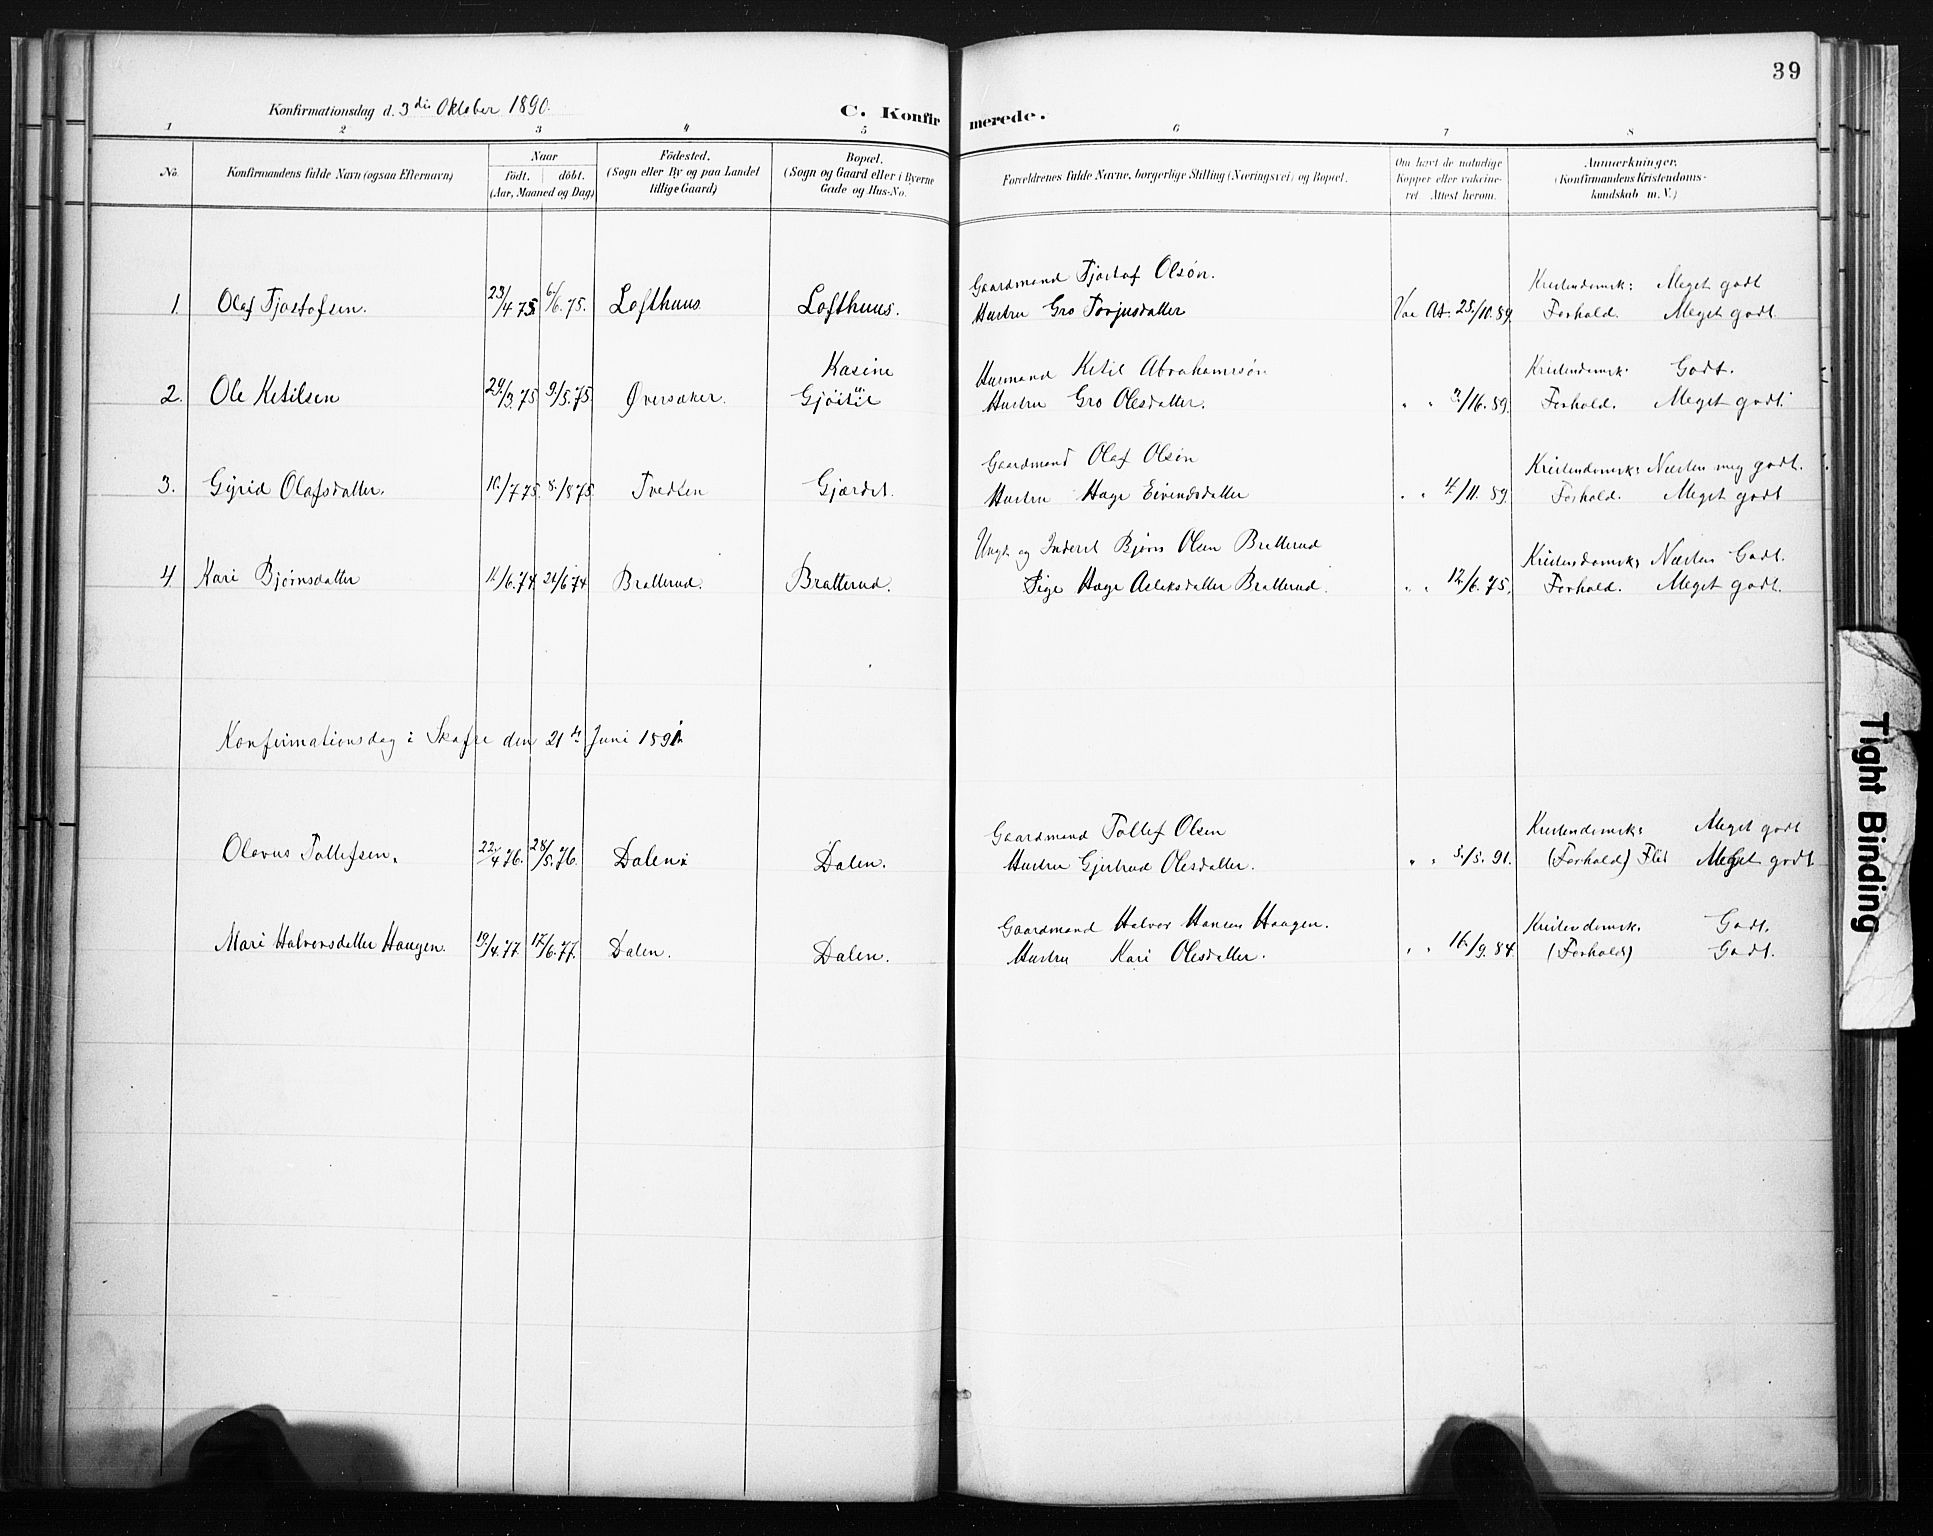 39
Konfirmationsdag d. 3die Oktober 1890.
C. Konfirmerede.
1 2 3 4 5 6 7 8
No. Konfirmandens fulde Navn (ogsaa Efternavn) Naar födt. döbt. (Aar, Maaned og Dag) Födested. (Sogn eller By og paa Landet tillige Gaard) Bopæl. (Sogn og Gaard eller i Byerne Gade og Hus-No. Forældrenes fulde Navne, borgerlige Stilling (Næringsvei) og Bopæl. Om havt de naturlige Kopper eller vakcineret Attest herom. Anmærkninger. (Konfirmandens Kristendomskundskab m. V.)
Gaardmand Tjostof Olsøn. Kristendomsk: Meget godt
1. Olaf Tjostofsen. 23/4 75. 6/6. 75. Lofthuus Lofthuus. Hustru Gro Torjusdatter Vac At. 25/10. 89. Forhold. Meget godt.
Kasine Husmand Ketil Abrahamsøn Kristendomsk. Godt.
2. Ole Ketilsen 29/3. 75 9/5. 75. Øversaker. Hustru Gro Olesdatter. " " /16. 89. Forhold. Meget godt.
Gaardmand Olaf Olsøn Kristendomsk: Næsten meg godt.
3. Gyrid Olafsdatter. 10/7 75. 8/8 75. Tvedten Gjærdet. Hustru Hæge Eivindsdatter " " 4/11. 89. Forhold. Meget godt
Ungk. og Inderst Bjørn Olsen Bratterud Kristendomsk; Næsten Godt.
4. Kari Bjørnsdatter 11/6. 74. 21/6 74 Bratterud. Bratterud. Pige Hæge Asleksdatter Bratterud. " " 12/6. 75. Forhold. Meget godt.
Konfirmationsdag i Skafse den 21de Juni 1891.
Gaardmand Tollef Olsen Kristendomsk: Meget godt
Olavus Tollefsen. 22/4 76. 28/5. 76. Dalen Dalen. Hustru Gjertrud Olesdatter. " " 5/5. 91. (Forhold) Flid Meget godt
Gaardmand Halvor Hansen Haugen. Kristendomsk. Godt.
Mari Halvorsdatter Haugen. 19/4. 77. 17/6. 77. Dalen. Dalen. Hustru Kari Olesdatter. " " 16/9. 84. (Forhold) Godt.
Tight Binding